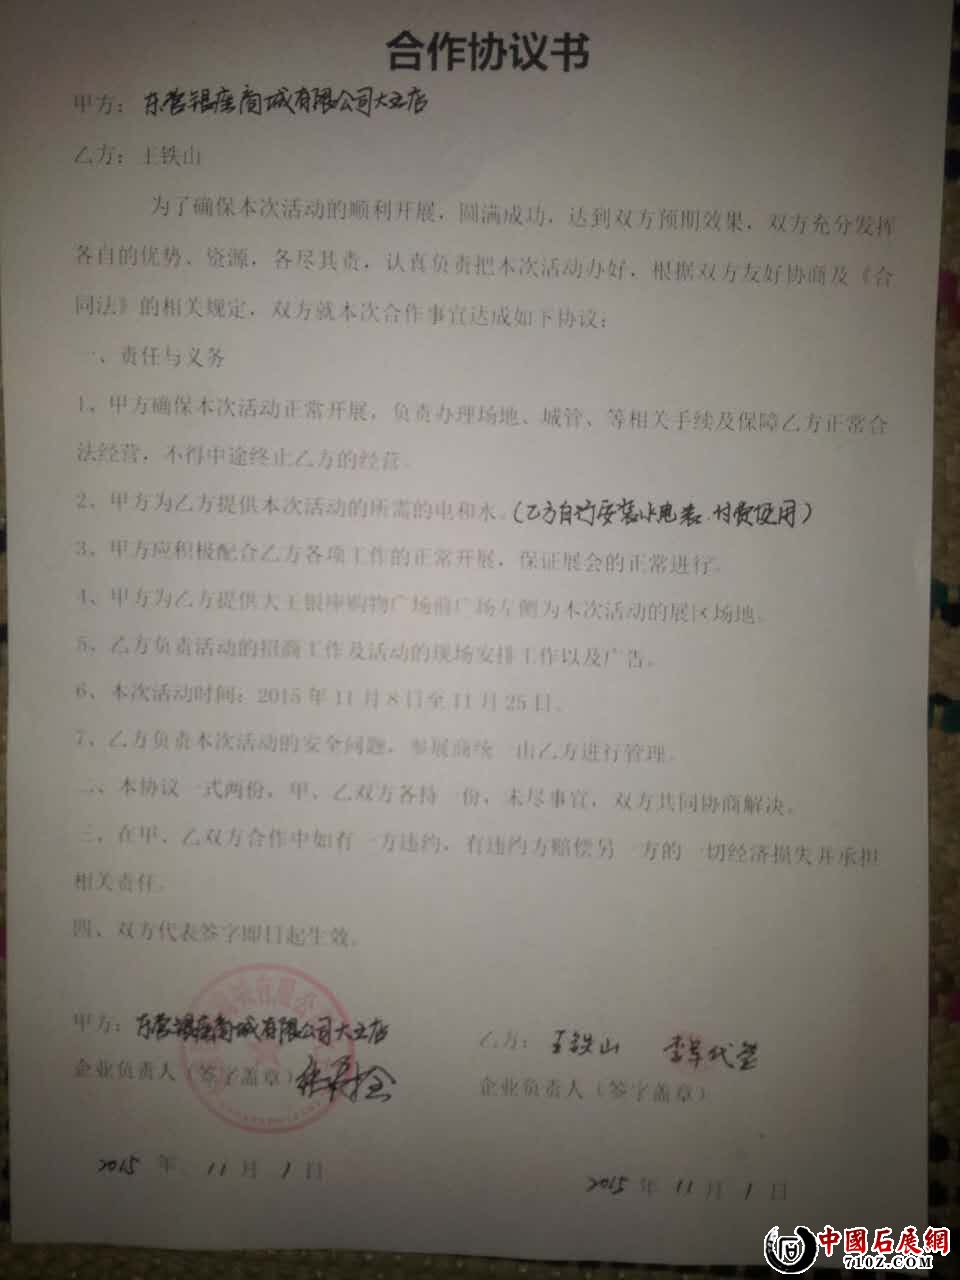 合作协议书
甲方：东营银座商城有限公司大王店
乙方：王铁山
为了确保本次活动的顺利开展，圆满成功，达到双方预期效果，双方充分发挥
各自的优势、资源，各尽其责，认真负责把本次活动办好，根据双方友好协商及《合
同法》的相关规定，双方就本次合作事宜达成如下协议：
一、责任与义务
1、甲方确保本次活动正常开展，负责办理场地、城管、等相关手续及保障乙方正常合
法经营，不得中途终止乙方的经营。
2、甲方为乙方提供本次活动的所需的电和水。（乙方自行安装水电表.付费使用）
3、甲方应积极配合乙方各项工作的正常开展，保证展会的正常进行。
4、甲方为乙方提供大王银座购物广场前广场左侧为本次活动的展区场地。
5、乙方负责活动的招商工作及活动的现场安排工作以及广告。
6、本次活动时间：2015年11月8日至11月25日。
7、乙方负责本次活动的安全问题，参展商统一由乙方进行管理。
二、本协议一式两份，甲、乙双方各持一份，未尽事宜，双方共同协商解决。
三、在甲、乙双方合作中如有一方违约，有违约方赔偿另一方的一切经济损失并承担
相关责任。
四、双方代表签字即日起生效。
甲方：东营银座商城有限公司大王店
乙方：王铁山 李军代签
企业负责人（签字盖章）
企业负责人（签字盖章）
2015年11月1日
2015年11月1日
中國石展網
7102.COM